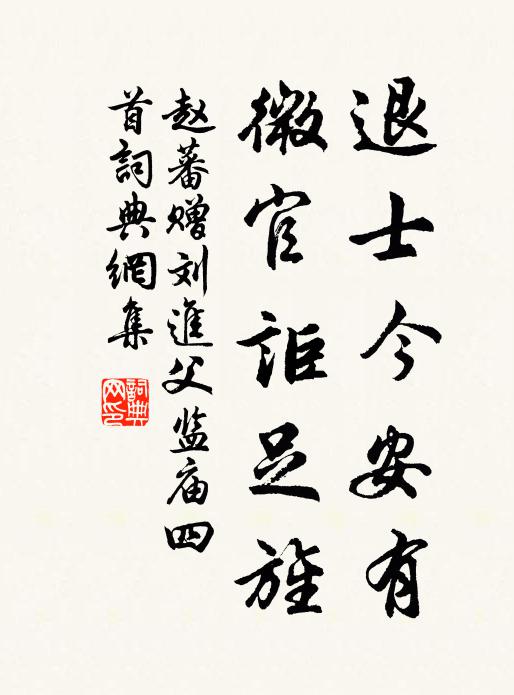 退士今安有
微官詎足旌
赵蕃赠刘進父监庙四
首詞典網集
詞典
网印